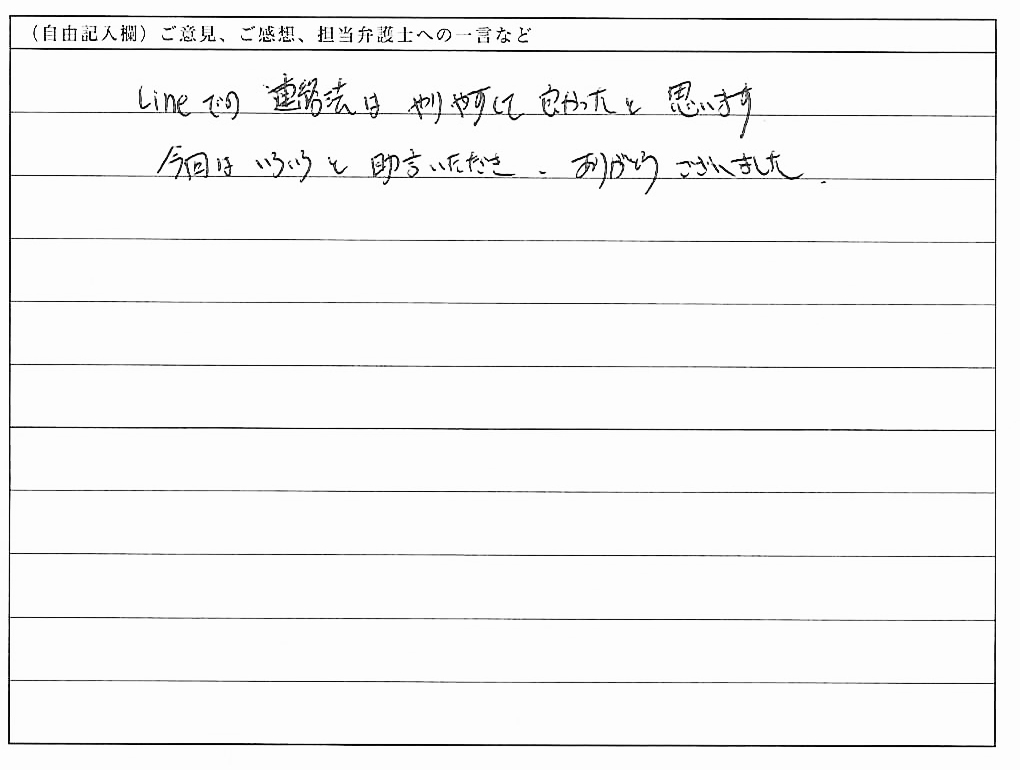 （自由記入欄）ご意見、ご感想、担当弁護士への一言など
Lineでの 連絡法は やりやすくて 良かったと 思います
今回は いろいろと 助言いただき、ありがとう ございました.